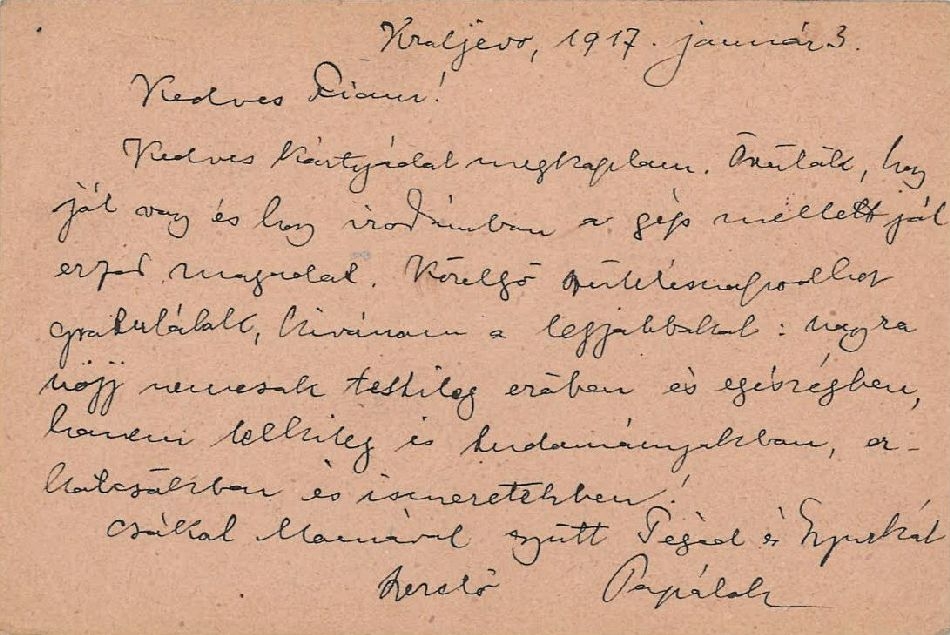 Kraljevo, 1917. január 3.
Kedves
Kedves kártyádat megkaptam. Örülök, hogy
jól vagy és hogy irodámban a gép mellett jól
érzed magadat. Közelgő születésnapodhoz
gratulálok, kivánom a legjobbakat: nagyra
nőjj nemcsak testileg erőben és egészségben,
hanem lelkileg is tudományokban, er-
kölcsökben és ismeretekben!
Csókol Mamával együtt Téged és
szerető Papátok